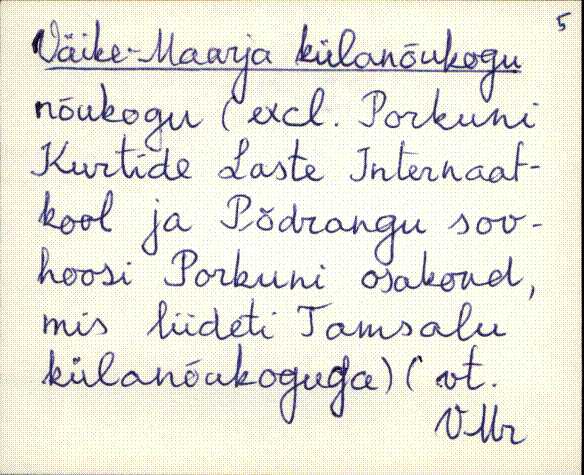 5
Väike-Maarja külanõukogu
nõukogu (excl. Porkuni
Kurtide Laste Internaat-
kool ja Põdrangu sov-
hoosi Porkuni osakond,
mis liideti Tamsalu
külanõukoguga) ( vt.
VMr